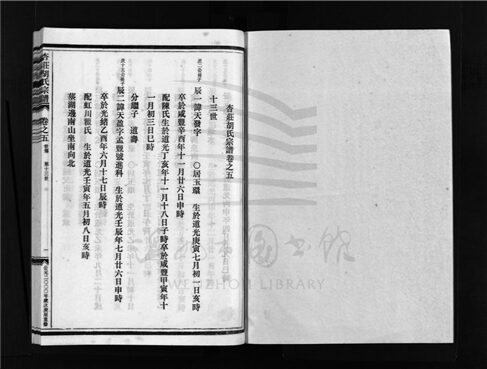 杏莊胡氏宗譜卷之五
十三世
辰一諱天發字 〇居玉環 生於道光庚寅七月初一日亥時
卒於咸豐辛酉年十一月廿六日申時
配陳氏生於道光丁亥年十一月十八日子時卒於咸豐甲寅年十
一月初三日巳時
分繼子 道壽
辰二諱天盈字孟豐號進科 生於道光壬辰年七月廿六日申時
卒於光緒乙酉年六月十七日辰時
配虹川雅氏 生於道光壬寅年五月初八日亥時
墓湖邊南山坐南向北
杏莊胡氏宗譜 卷之五 第十三世 一
WENZHOU LIBRARY